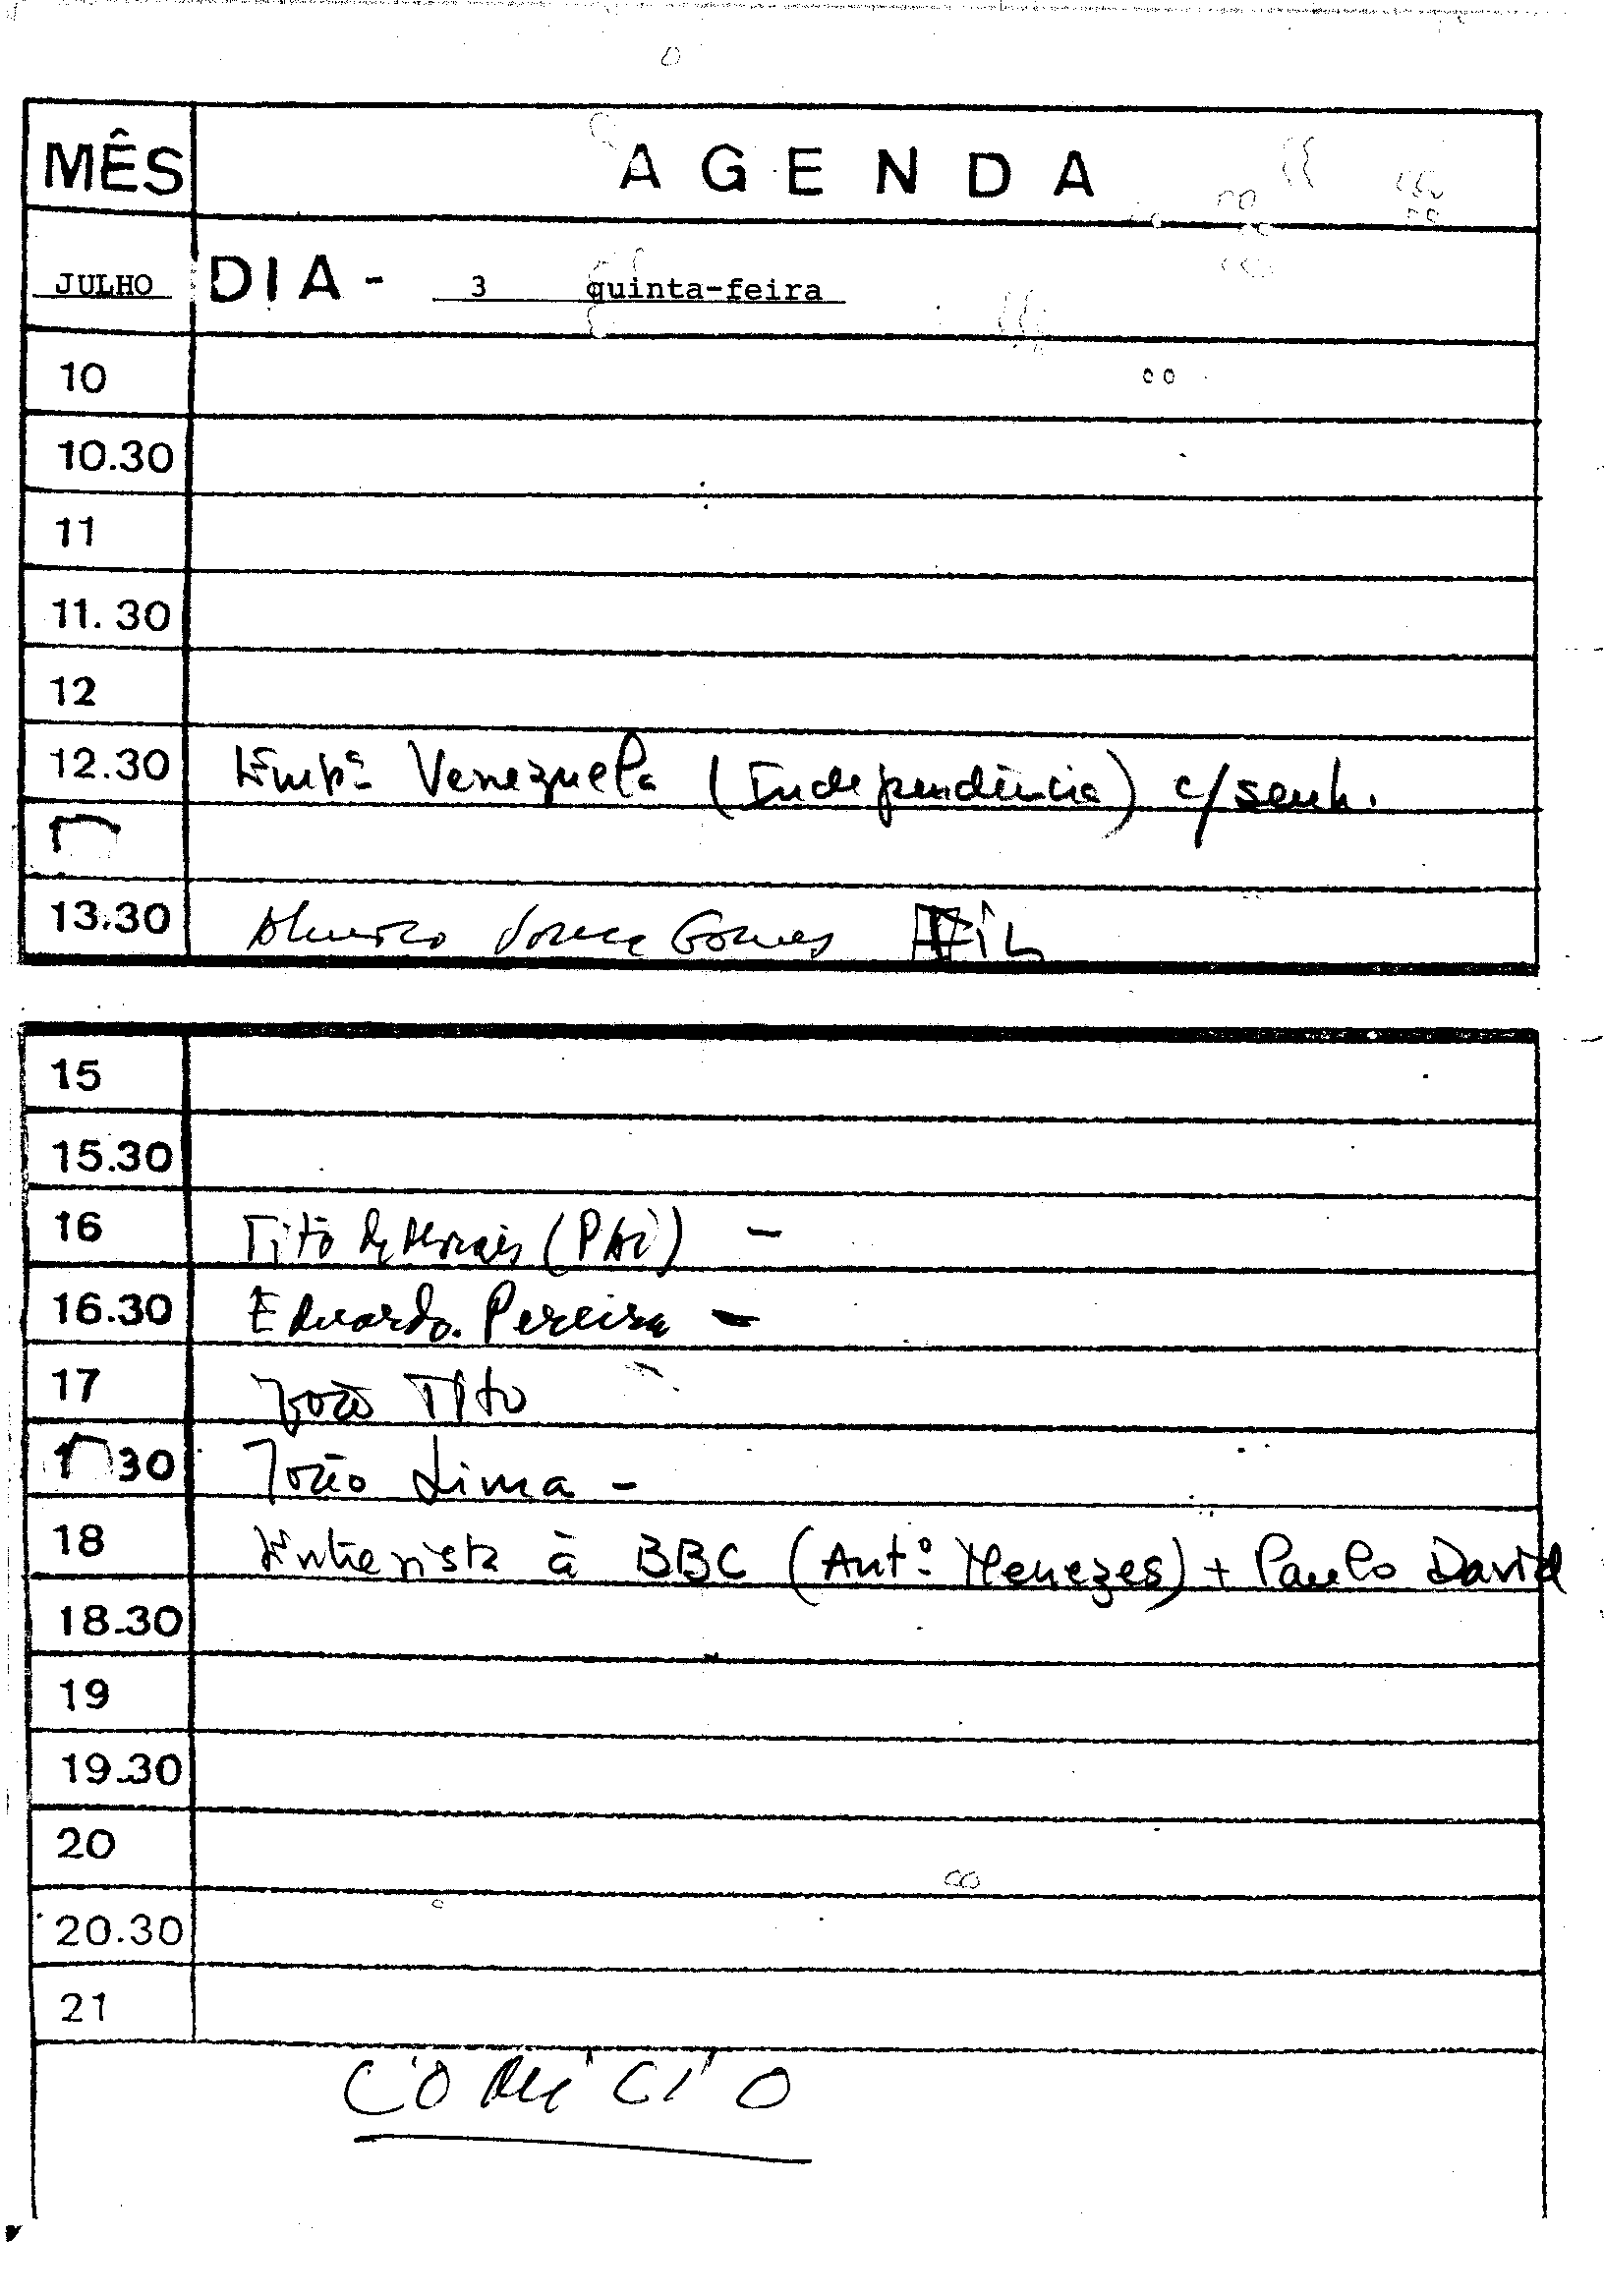 MÊS AGENDA
JULHO DIA - 3 quinta-feira
10
10.30
11
11.30
12
12.30 Embª Venezuela (Independência) c/senh.
13.30 Gomes
15
15.30
16 Tito de Morais (PAi) -
16.30 Eduardo Pereira -
17 João Tito
30 João Lima -
18 Entrevista à BBC (Antº Menezes) + Paulo David
18.30
19
19.30
20
20.30
21
COMÍCIO